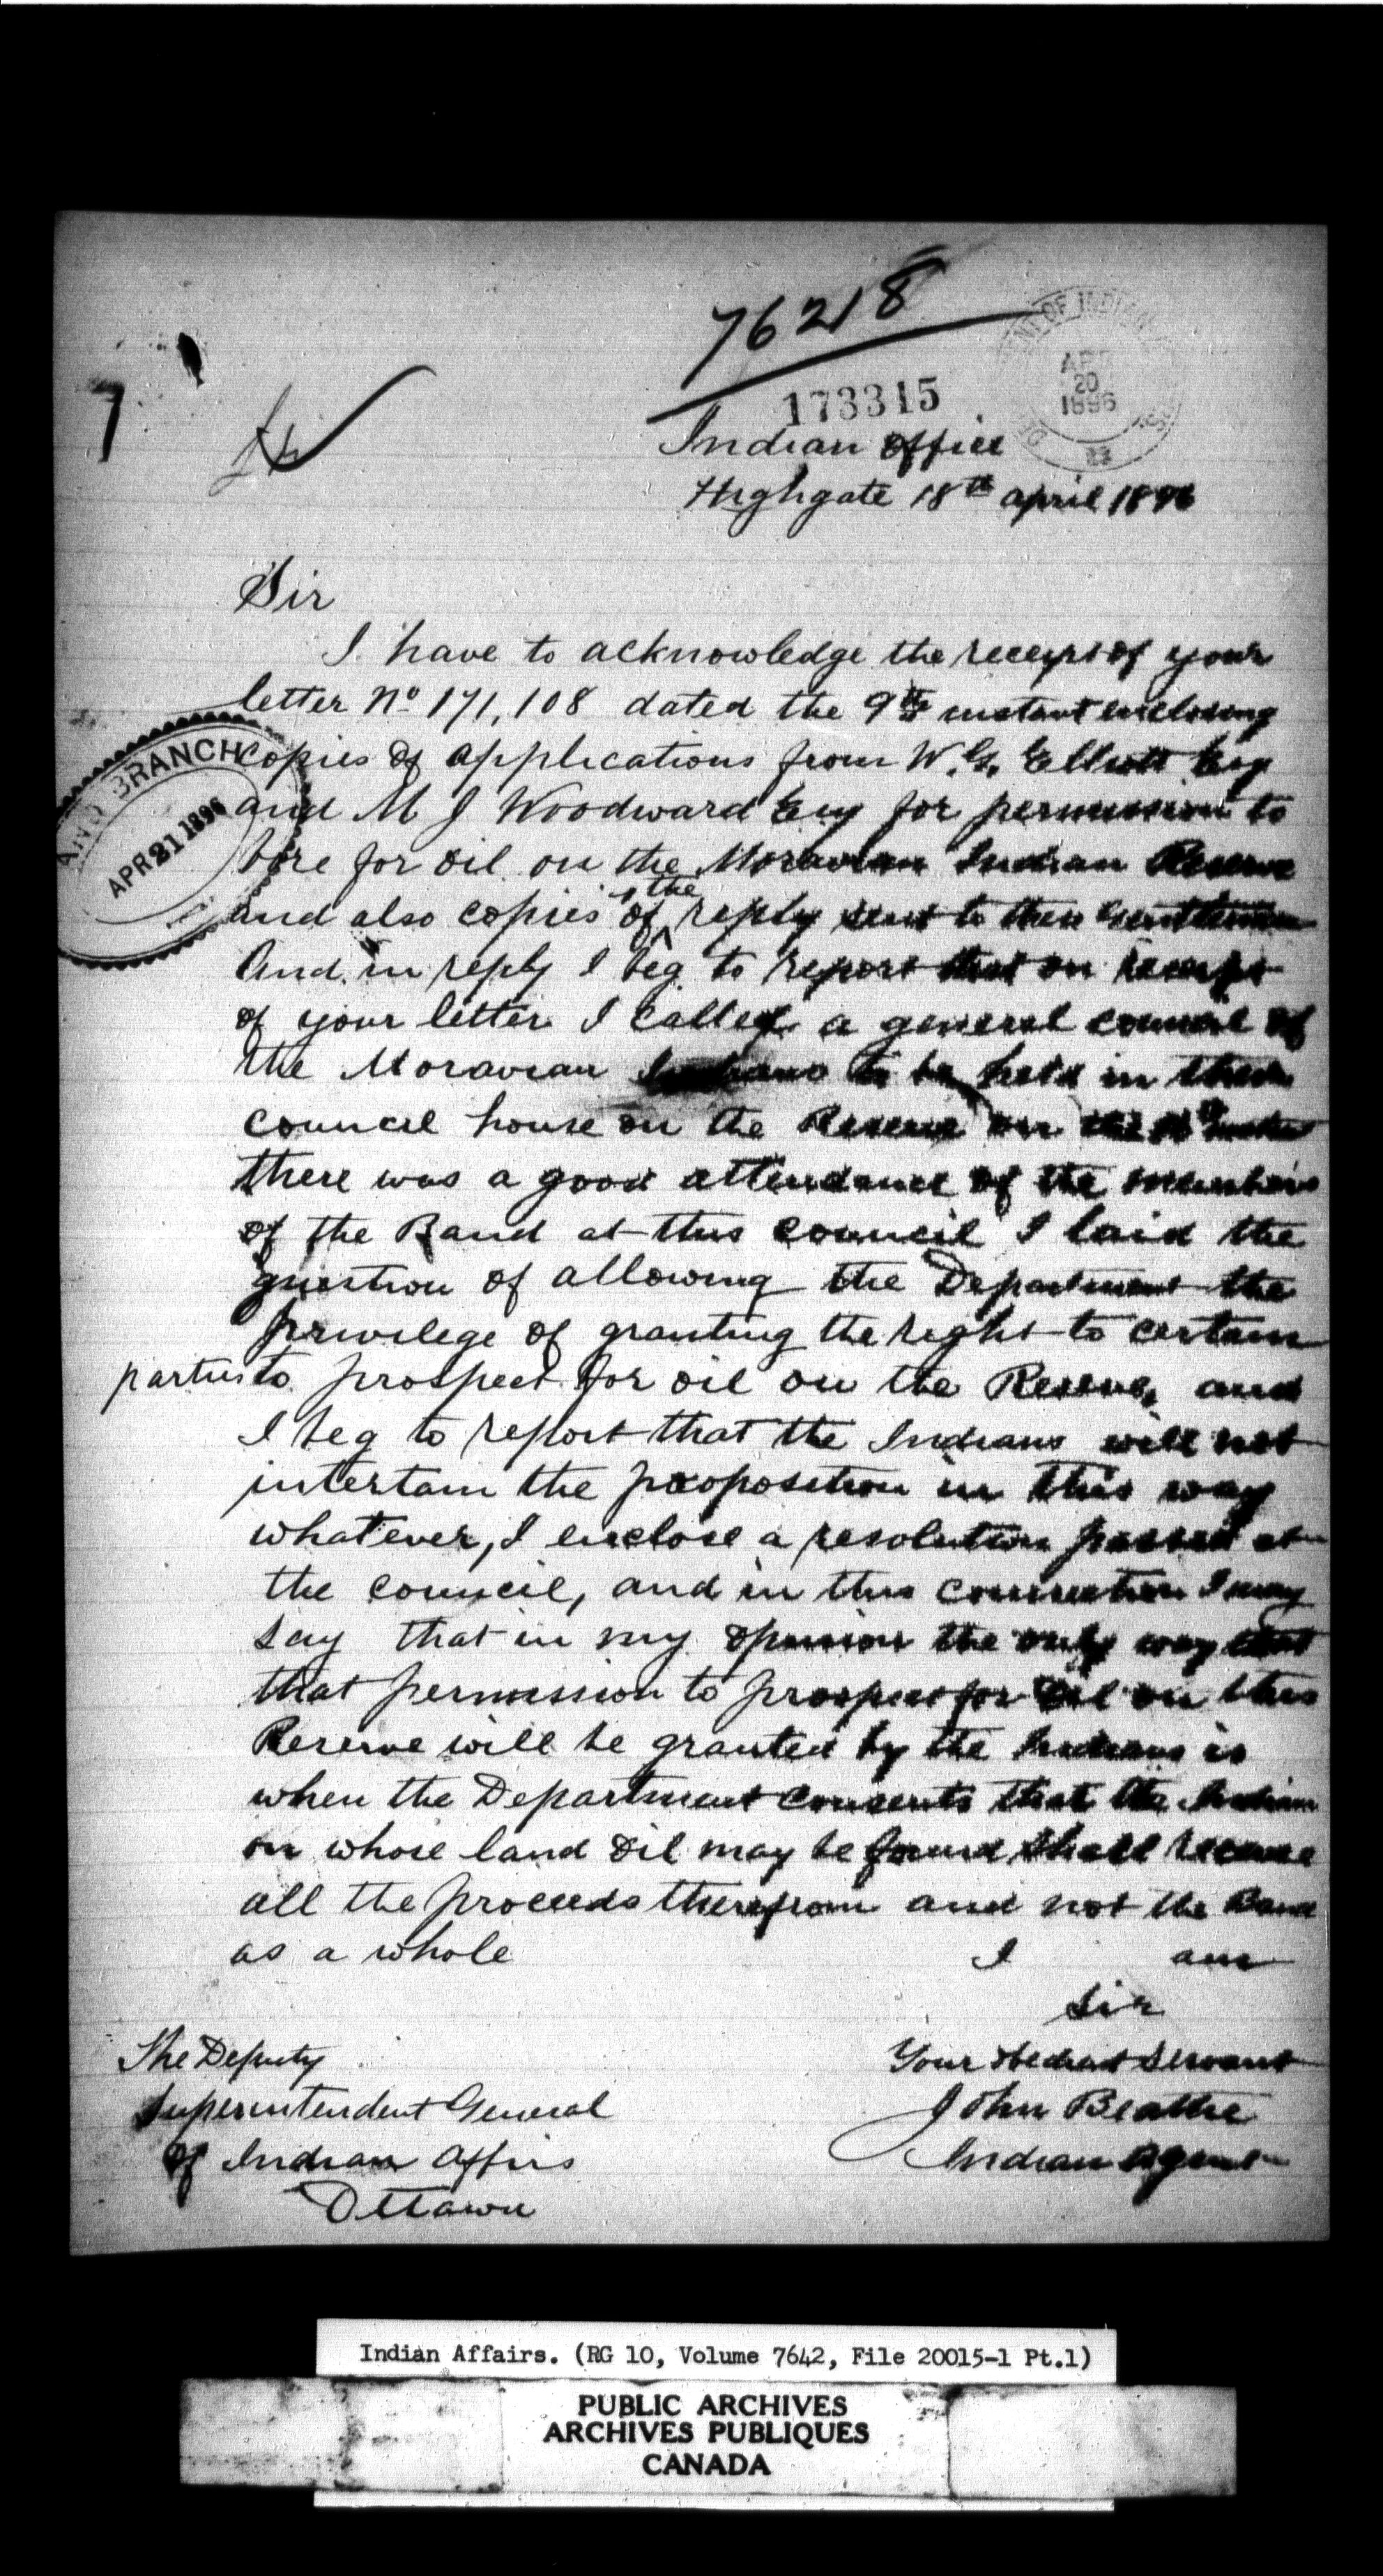 76218
DEPARTMENT OF INDIAN
APR
20
1896
173315
7
Indian Office
Highgate 18th april 1896
Sir
I have to acknowledge the receipt of your
letter No 171,108 dated the 9th instant inclosing
copies of applications from W. G. Elliott Esq
and M J Woodward Esq for permission to
bore for oil on the Moravian Indian Reserve
and also copies of the reply sent to these Gentlemen
And in reply I beg to report that on receipt
of your letter I called a general council of
the Moravian Indians to be held in their
council house on the Reserve on the
there was a good attendance of the members
of the Band at this council I laid the
question of allowing the Department the
privilege of granting the right to certain
parties to prospect for oil on the Reserve, and
I beg to report that the Indians will not
intertain the proposition in this way
whatever, I enclose a resolution passed at
the council, and in this connection I may
say that in my opinion the only way that
that permission to prospect for Oil on this
Reserve will be granted by the Indians is
when the Department consents that the Indian
on whose land Oil may be found shall receive
all the proceeds therefrom and not the Band
as a whole I am
Sir
Your obedient Servant
John Beattie
Indian Agent
The Deputy
Superintendent General
of Indian Affirs
Ottawa
LAND BRANCH
APR 21 1896
Indian Affairs. (RG 10, Volume 7642, File 20015-1 Pt.1)
PUBLIC ARCHIVES
ARCHIVES PUBLIQUES
CANADA